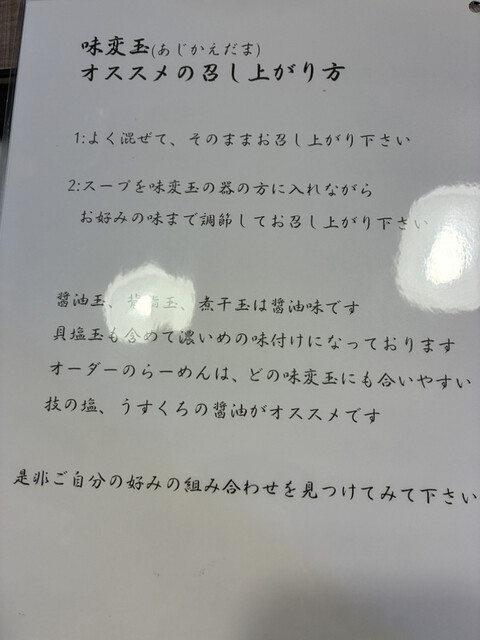 味変玉(あじかえだま)
オススメの召し上がり方
1:よく混ぜて、そのままお召し上がり下さい
2:スープを味変玉の器の方に入れながら
お好みの味まで調節してお召し上がり下さい
醤油玉、脂玉、煮干玉は醤油味です
貝塩玉も含めて濃いめの味付けになっております
オーダーのらーめんは、どの味変玉にも合いやすい
技の塩、うすくろの醤油がオススメです
是非ご自分の好みの組み合わせを見つけてみて下さい